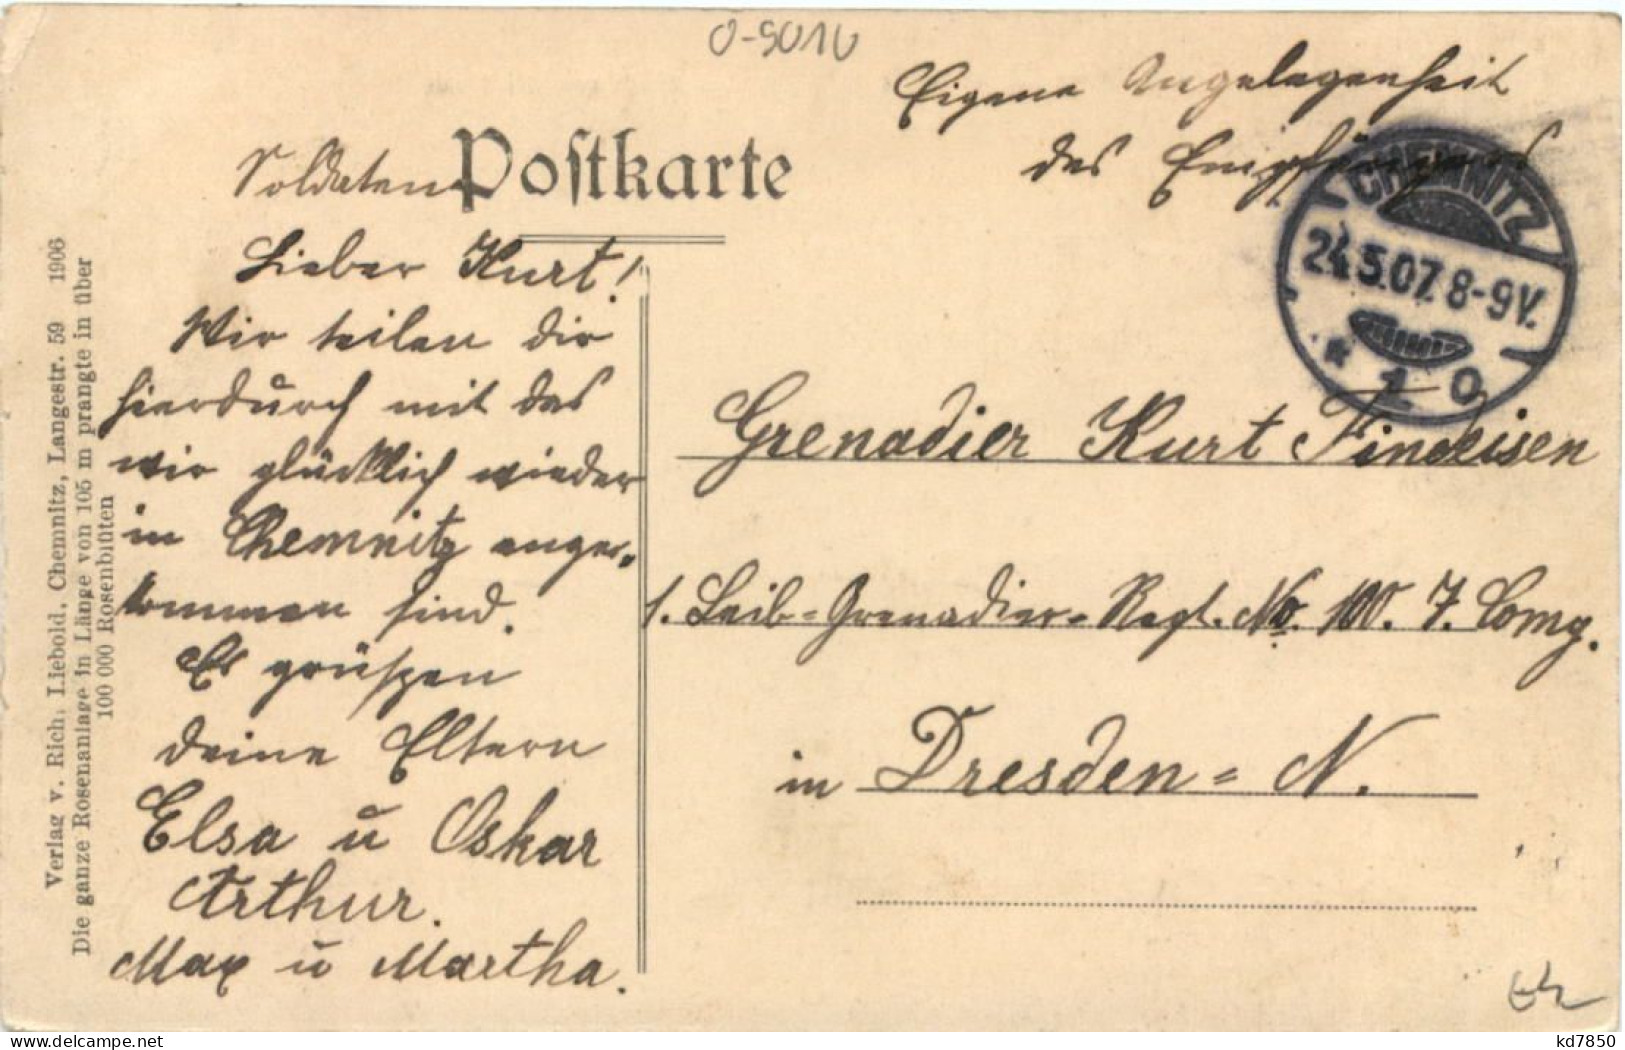 0-9010
Eigene Angelegenheit
des Empfängers
Soldaten Postkarte
CHEMNITZ
24.5.07. 8-9V.
* 1 0
Lieber Kurt!
Wir teilen dir
hierdurch mit das
wir glücklich wieder
in Chemnitz ange-
kommen sind.
Es grüßen
deine Eltern
Elsa u Oskar
Arthur.
Max u Martha.
Grenadier Kurt Findeisen
1. Leib-Grenadier-Regt. No. 100. 7. Comp.
in Dresden-N.
Verlag v. Rich. Liebold, Chemnitz, Langestr. 59 1906
Die ganze Rosenanlage in Länge von 105 m prangte in über
100 000 Rosenblüten
kd7850